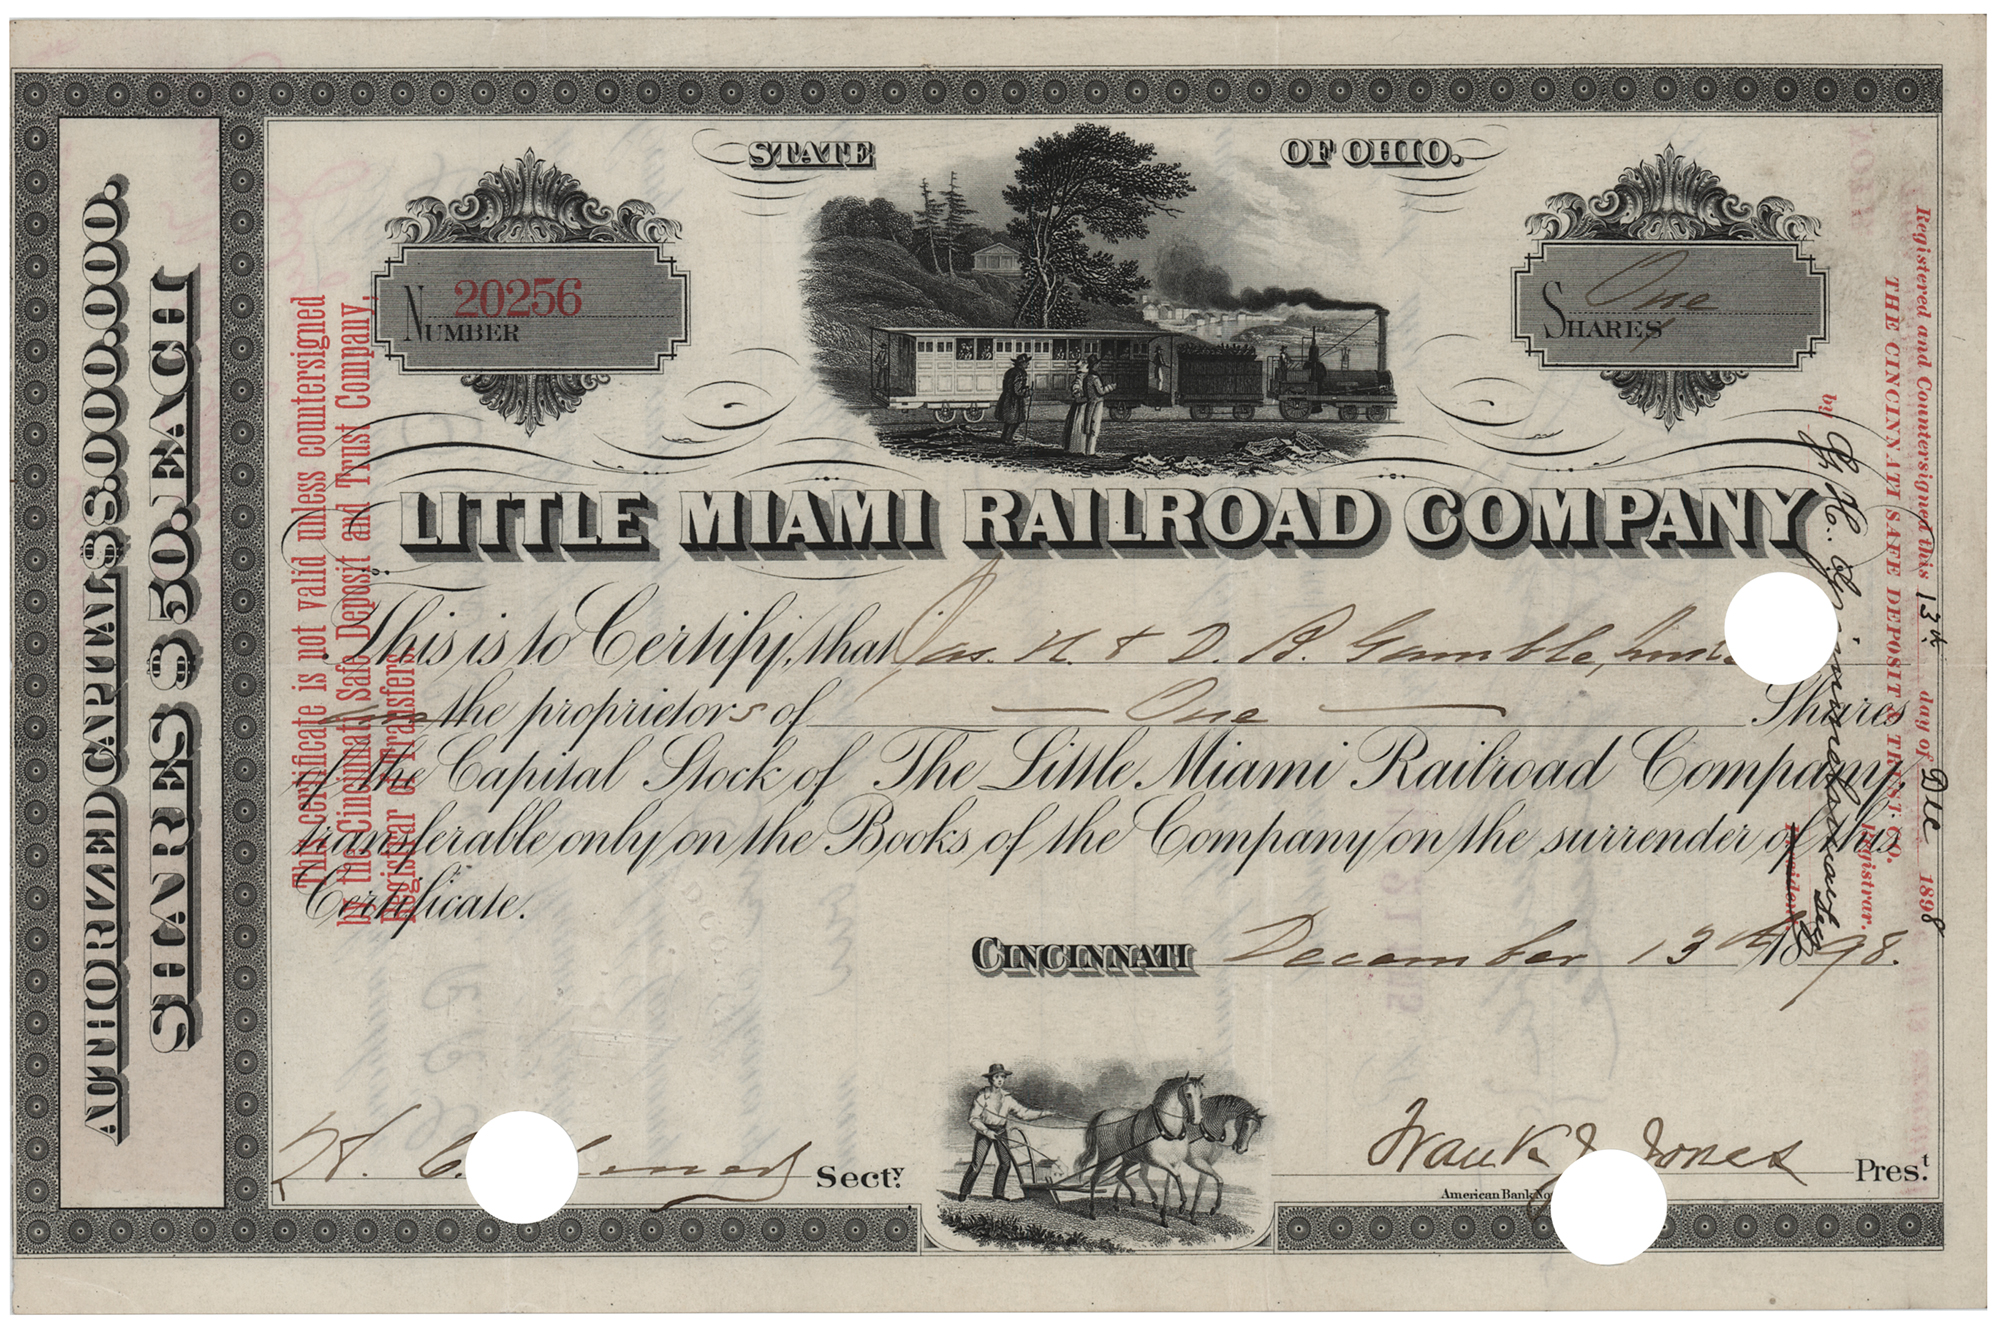 STATE OF OHIO.
NUMBER 20256
SHARES One
LITTLE MIAMI RAILROAD COMPANY
This is to Certify, that Jas. N. & D. B. Gamble,
are the proprietors of — One — Shares
of the Capital Stock of The Little Miami Railroad Company
transferable only on the Books of the Company on the surrender of this
Certificate.
CINCINNATI December 13th 1898.
Secty.
Frank J. Jones Prest.
American Bank No
AUTHORIZED CAPITAL $8.000.000.
SHARES $50. EACH
This certificate is not valid unless countersigned
by the Cincinnati Safe Deposit and Trust Company,
Registrar of Transfers.
Registered and Countersigned this 13th day of Dec 1898
THE CINCINNATI SAFE DEPOSIT & TRUST CO.
Registrar.
by
President